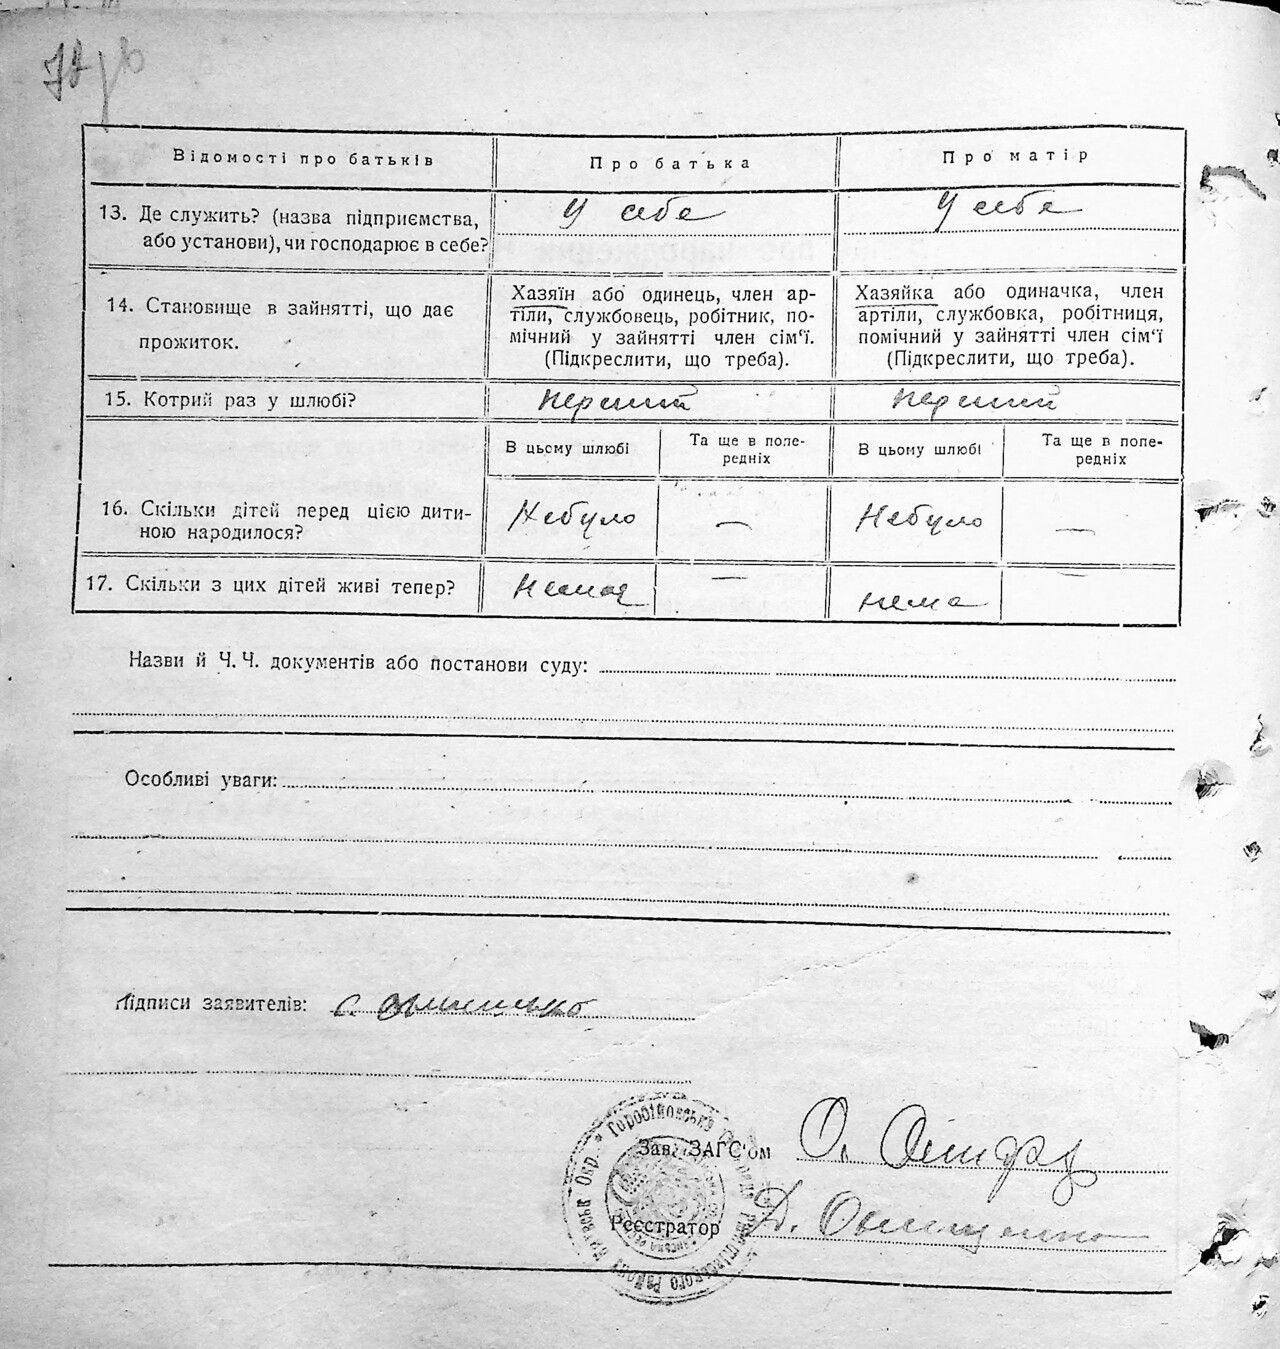 Відомості про батьків
Про батька
Про матір
13. Де служить? (назва підприємства, або установи), чи господарює в себе?
У себе
У себе
14. Становище в зайнятті, що дає прожиток.
Хазяїн або одинець, член ар-
тіли, службовець, робітник, по-
мічний у зайнятті член сім'ї.
(Підкреслити, що треба).
Хазяйка або одиначка, член
артіли, службовка, робітниця,
помічний у зайнятті член сім'ї
(Підкреслити, що треба).
15. Котрий раз у шлюбі?
перший
перший
В цьому шлюбі
Та ще в попе-
редніх
В цьому шлюбі
Та ще в попе-
редніх
16. Скільки дітей перед цією дити-
ною народилося?
Небуло
—
Небуло
—
17. Скільки з цих дітей живі тепер?
Нема
—
нема
—
Назви й Ч. Ч. документів або постанови суду:
Особливі уваги:
Підписи заявителів: С.
Зав. ЗАГС'ом О.
Реєстратор Д.